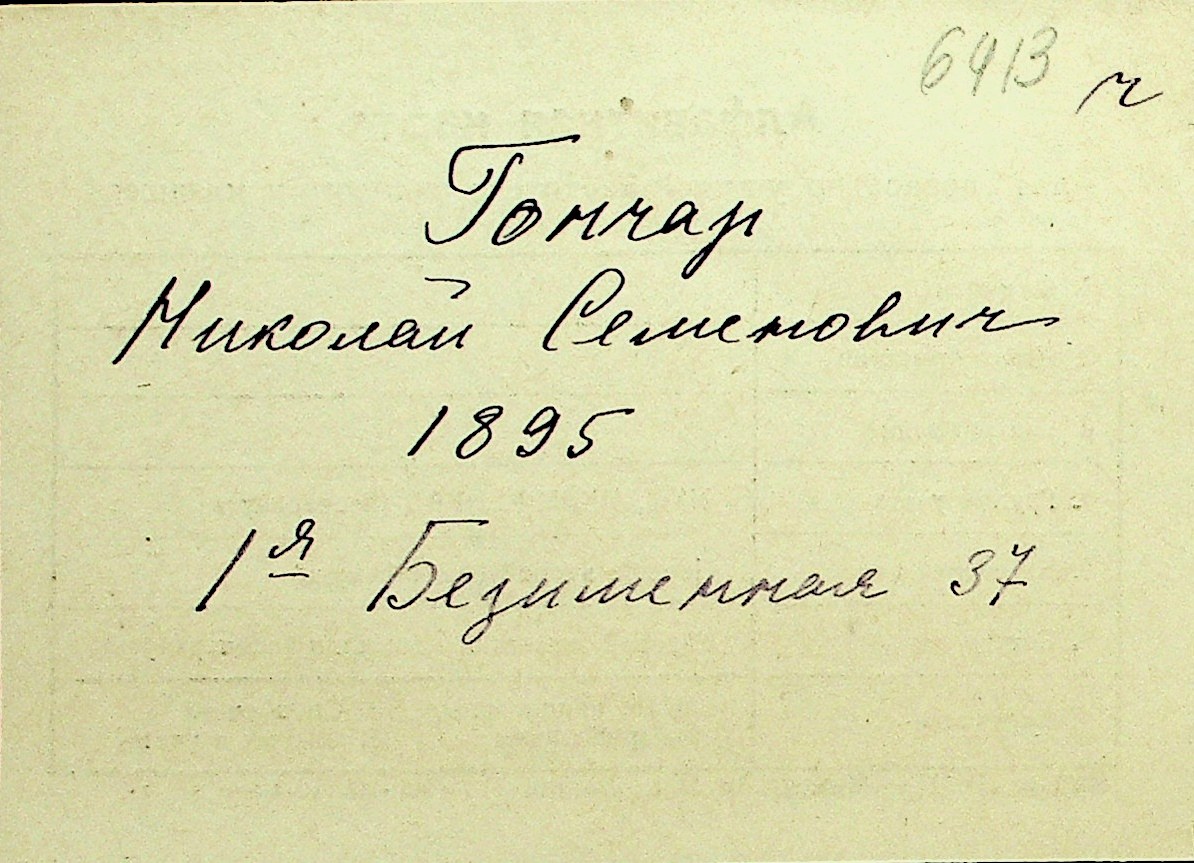 6413 ч
Гончар
Николай Семенович
1895
1я Безименная 37